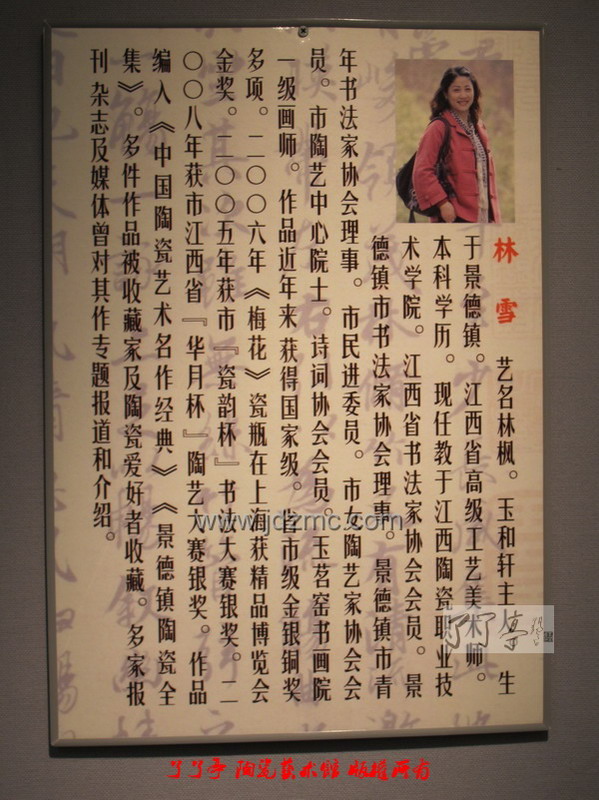 林雪 艺名林枫。玉和轩主 生
于景德镇。江西省高级工艺美术师。
本科学历。现任教于江西陶瓷职业技
术学院。江西省书法家协会会员。景
德镇市书法家协会理事。景德镇市青
年书法家协会理事。市民进委员。市女陶艺家协会会
员。市陶艺中心院士。诗词协会会员。玉茗窑书画院
一级画师。作品近年来获得国家级。省市级金银铜奖
多项。二〇〇六年《梅花》瓷瓶在上海获精品博览会
金奖。二〇〇五年获市『瓷韵杯』书法大赛银奖。二
〇〇八年获市江西省『华月杯』陶艺大赛银奖。作品
编入《中国陶瓷艺术名作经典》《景德镇陶瓷全
集》。多件作品被收藏家及陶瓷爱好者收藏。多家报
刊杂志及媒体曾对其作专题报道和介绍。
www.jdzmc.com
了了亭
了了亭 陶瓷艺术馆 版权所有